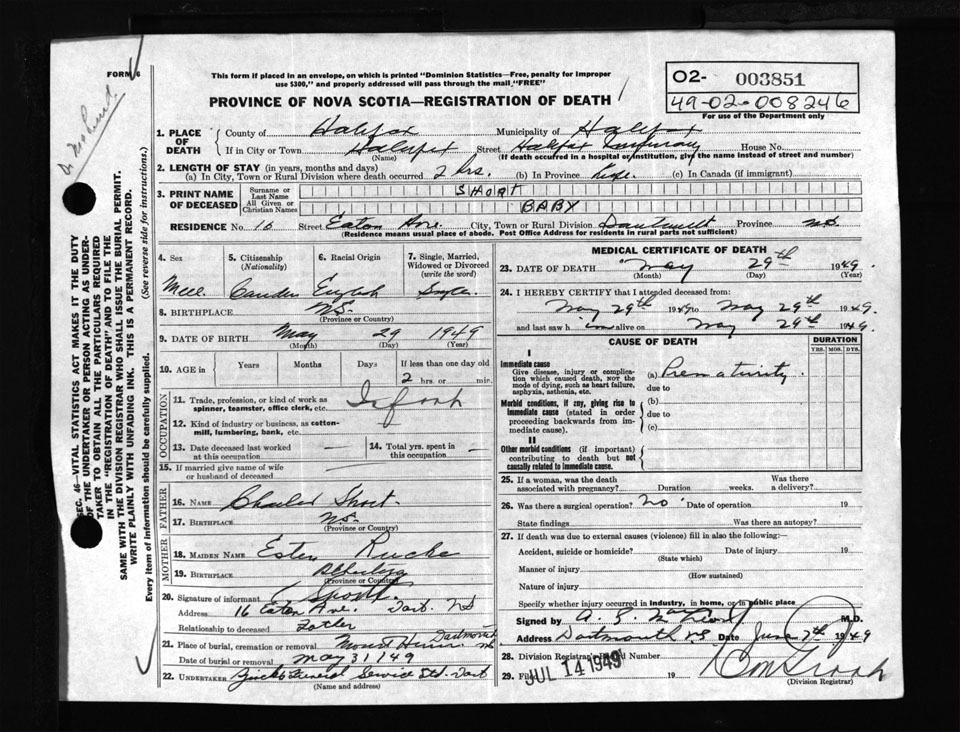 FORM 6
This form if placed in an envelope, on which is printed "Dominion Statistics—Free, penalty for improper
use $300," and properly addressed will pass through the mail "FREE"
PROVINCE OF NOVA SCOTIA—REGISTRATION OF DEATH
O2- 003851
49-02-008246
For use of the Department only
SEC. 46—VITAL STATISTICS ACT MAKES IT THE DUTY
OF THE UNDERTAKER OR PERSON ACTING AS UNDER-
TAKER TO OBTAIN ALL THE PARTICULARS REQUIRED
IN THE "REGISTRATION OF DEATH" AND TO FILE THE
SAME WITH THE DIVISION REGISTRAR WHO SHALL ISSUE THE BURIAL PERMIT.
WRITE PLAINLY WITH UNFADING INK. THIS IS A PERMANENT RECORD.
Every item of information should be carefully supplied. (See reverse side for instructions.)
1. PLACE OF DEATH County of Halifax Municipality of Halifax
If in City or Town Halifax (Name) Street Halifax Infirmary House No.
(If death occurred in a hospital or institution, give the name instead of street and number)
2. LENGTH OF STAY (in years, months and days)
(a) In City, Town or Rural Division where death occurred 2 hrs. (b) In Province Life. (c) In Canada (if immigrant)
3. PRINT NAME OF DECEASED Surname or Last Name SHORT
All Given or Christian Names BABY
RESIDENCE No. 16 Street Eaton Ave. City, Town or Rural Division Dartmouth Province N.S.
(Residence means usual place of abode. Post Office Address for residents in rural parts not sufficient)
4. Sex 5. Citizenship (Nationality) 6. Racial Origin 7. Single, Married, Widowed or Divorced (write the word)
Male Canadian English Single
8. BIRTHPLACE N.S.
(Province or Country)
9. DATE OF BIRTH May 29 1949
(Month) (Day) (Year)
10. AGE in Years Months Days If less than one day old
2 hrs. or min.
OCCUPATION
11. Trade, profession, or kind of work as
spinner, teamster, office clerk, etc.
12. Kind of industry or business, as cotton-
mill, lumbering, bank, etc.
13. Date deceased last worked at this occupation 14. Total yrs. spent in this occupation
15. If married give name of wife
or husband of deceased
FATHER
16. NAME Charles Short.
17. BIRTHPLACE N.S.
(Province or Country)
MOTHER
18. MAIDEN NAME
19. BIRTHPLACE
(Province or Country)
20. Signature of informant C Short.
Address 16 Eaton Ave. Dart. NS
Relationship to deceased Father
21. Place of burial, cremation or removal Mount Dartmouth NS
Date of burial or removal May 31/49
22. UNDERTAKER Funeral Service Ltd. Dart
(Name and address)
MEDICAL CERTIFICATE OF DEATH
23. DATE OF DEATH May 29th 1949.
(Month) (Day) (Year)
24. I HEREBY CERTIFY that I attended deceased from:
May 29th 1949 to May 29th 1949
and last saw him alive on May 29th 1949.
CAUSE OF DEATH DURATION
YRS. MOS. DYS.
I
Immediate cause
Give disease, injury or complica-
tion which caused death, not the
mode of dying, such as heart failure,
asphyxia, asthenia, etc.
(a) Prematurity.
due to
Morbid conditions, if any, giving rise to
immediate cause (stated in order
proceeding backwards from im-
mediate cause).
(b)
due to
(c)
II
Other morbid conditions (if important)
contributing to death but not
causally related to immediate cause.
25. If a woman, was the death
associated with pregnancy? Duration weeks. Was there a delivery?
26. Was there a surgical operation? No Date of operation 19
State findings Was there an autopsy?
27. If death was due to external causes (violence) fill in also the following:
Accident, suicide or homicide? Date of injury 19
(State which)
Manner of injury
(How sustained)
Nature of injury
Specify whether injury occurred in industry, in home, or in public place
Signed by M.D.
Address Dartmouth NS Date June 7th 1949
28. Division Registrar's Record Number
29. Filed JUL 14 1949 19
(Division Registrar)